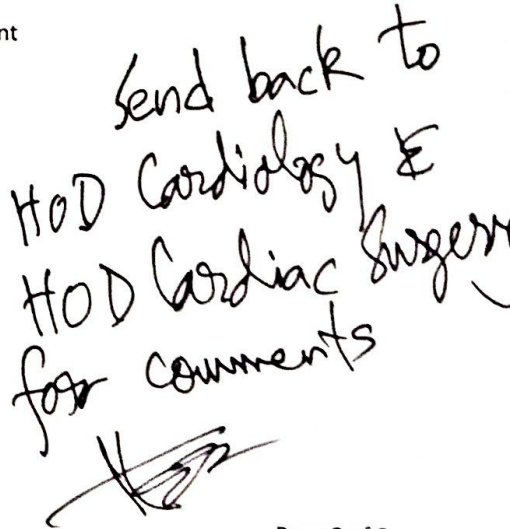 nt
Send back to
HOD Cardiology &
HOD Cardiac Surgery
for comments